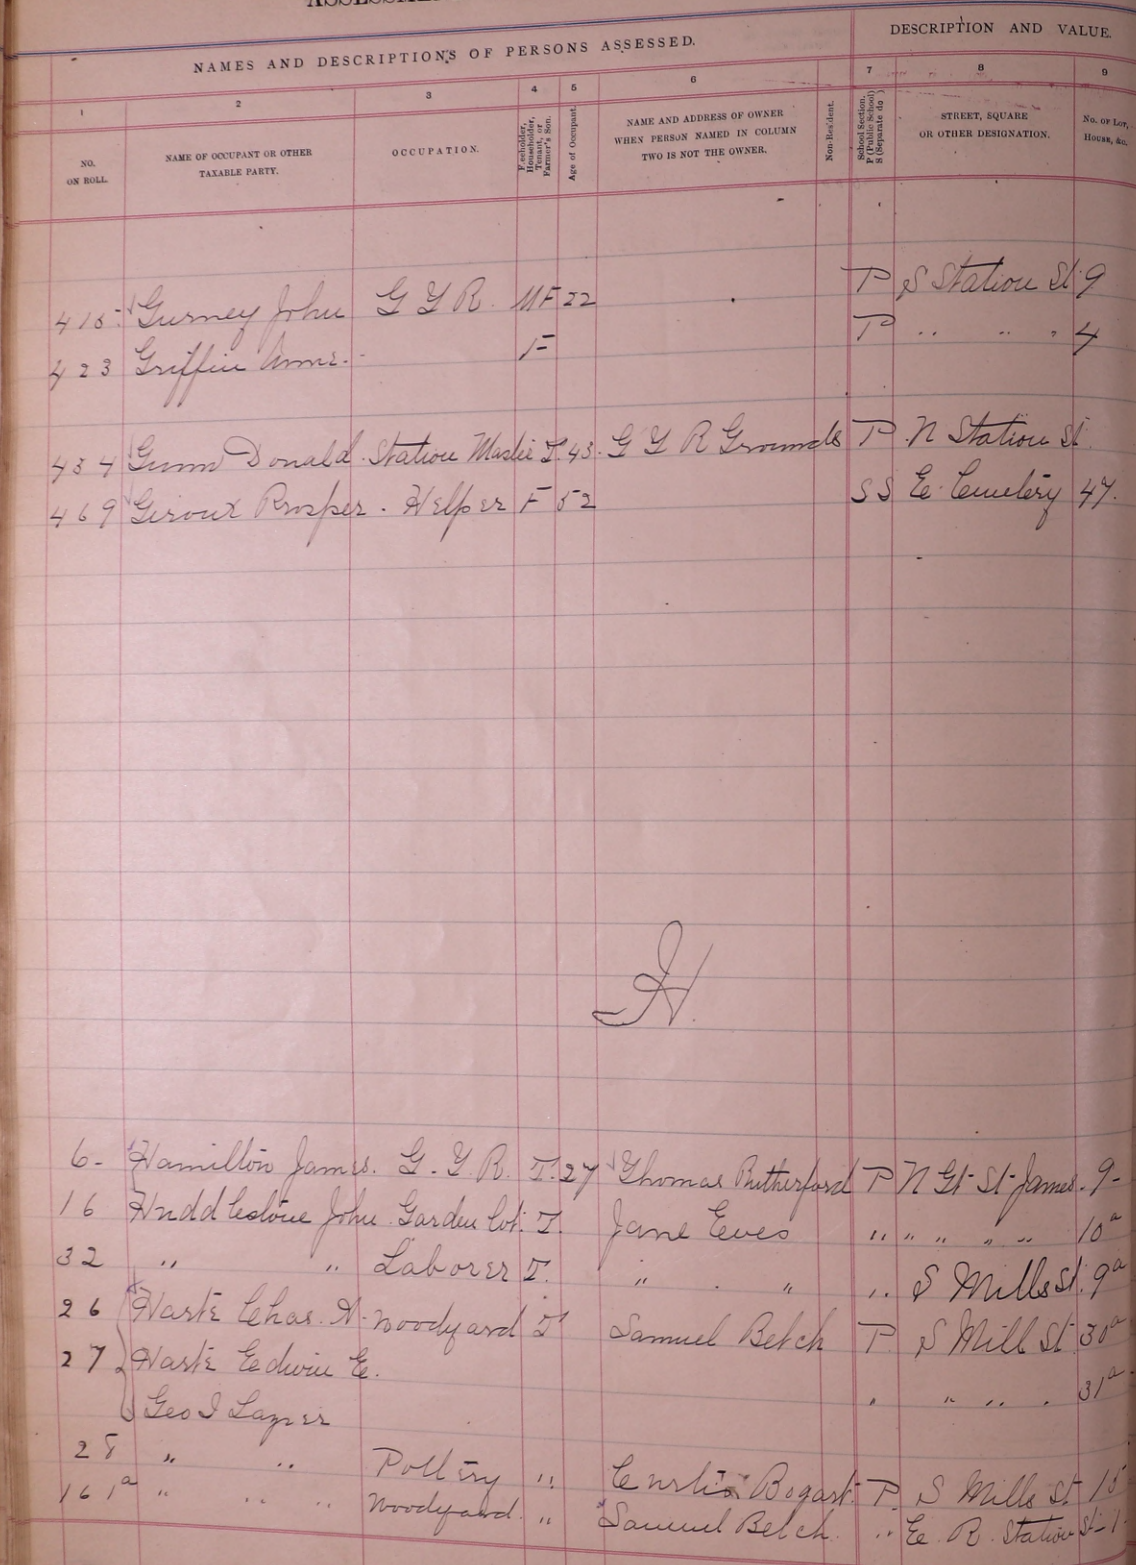 NAMES AND DESCRIPTIONS OF PERSONS ASSESSED. DESCRIPTION AND VALUE.
1 2 3 4 5 6 7 8 9
NO. ON ROLL. NAME OF OCCUPANT OR OTHER TAXABLE PARTY. OCCUPATION. Freeholder, Householder, Tenant, or Farmer's Son. Age of Occupant. NAME AND ADDRESS OF OWNER WHEN PERSON NAMED IN COLUMN TWO IS NOT THE OWNER. Non-Resident. School Section, P (Public School) S (Separate do.) STREET, SQUARE OR OTHER DESIGNATION. No. of Lot, House, &c.
415 Gurney John G T R. MF 22 P S Station St 9
423 Griffin Anne. F P " " " 4
434 Gunn Donald Station Master T 43. G T R Grounds P N Station St
469 Giroux Prosper. Helper F 52 SS E Cemetery 47.
H.
6- Hamilton James. G. T. R. T. 27 Thomas Rutherford P N Gt St James. 9-
16 Huddlestone John Garden Lot. T. Jane Eves " " " " " 10a
32 " " Laborer T. " " " S Mills St. 9a
26 Harte Chas. A. Woodyard T Samuel Belch P. S Mill St 30a
27 Harte Edwin E. " " " " 31a
Geo I Lazier
28 " " Pottery " Curtis Bogart. P. S Mills St 15
161a " " " Woodyard. " Samuel Belch. " E. R. Station St-1